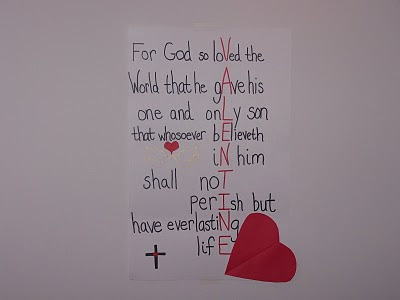 For God so loVed the
World that he gAve his
one and onLy son
that whosoever bElieveth
iN him
shall noT
perIsh but
have everlastiNg
lifE